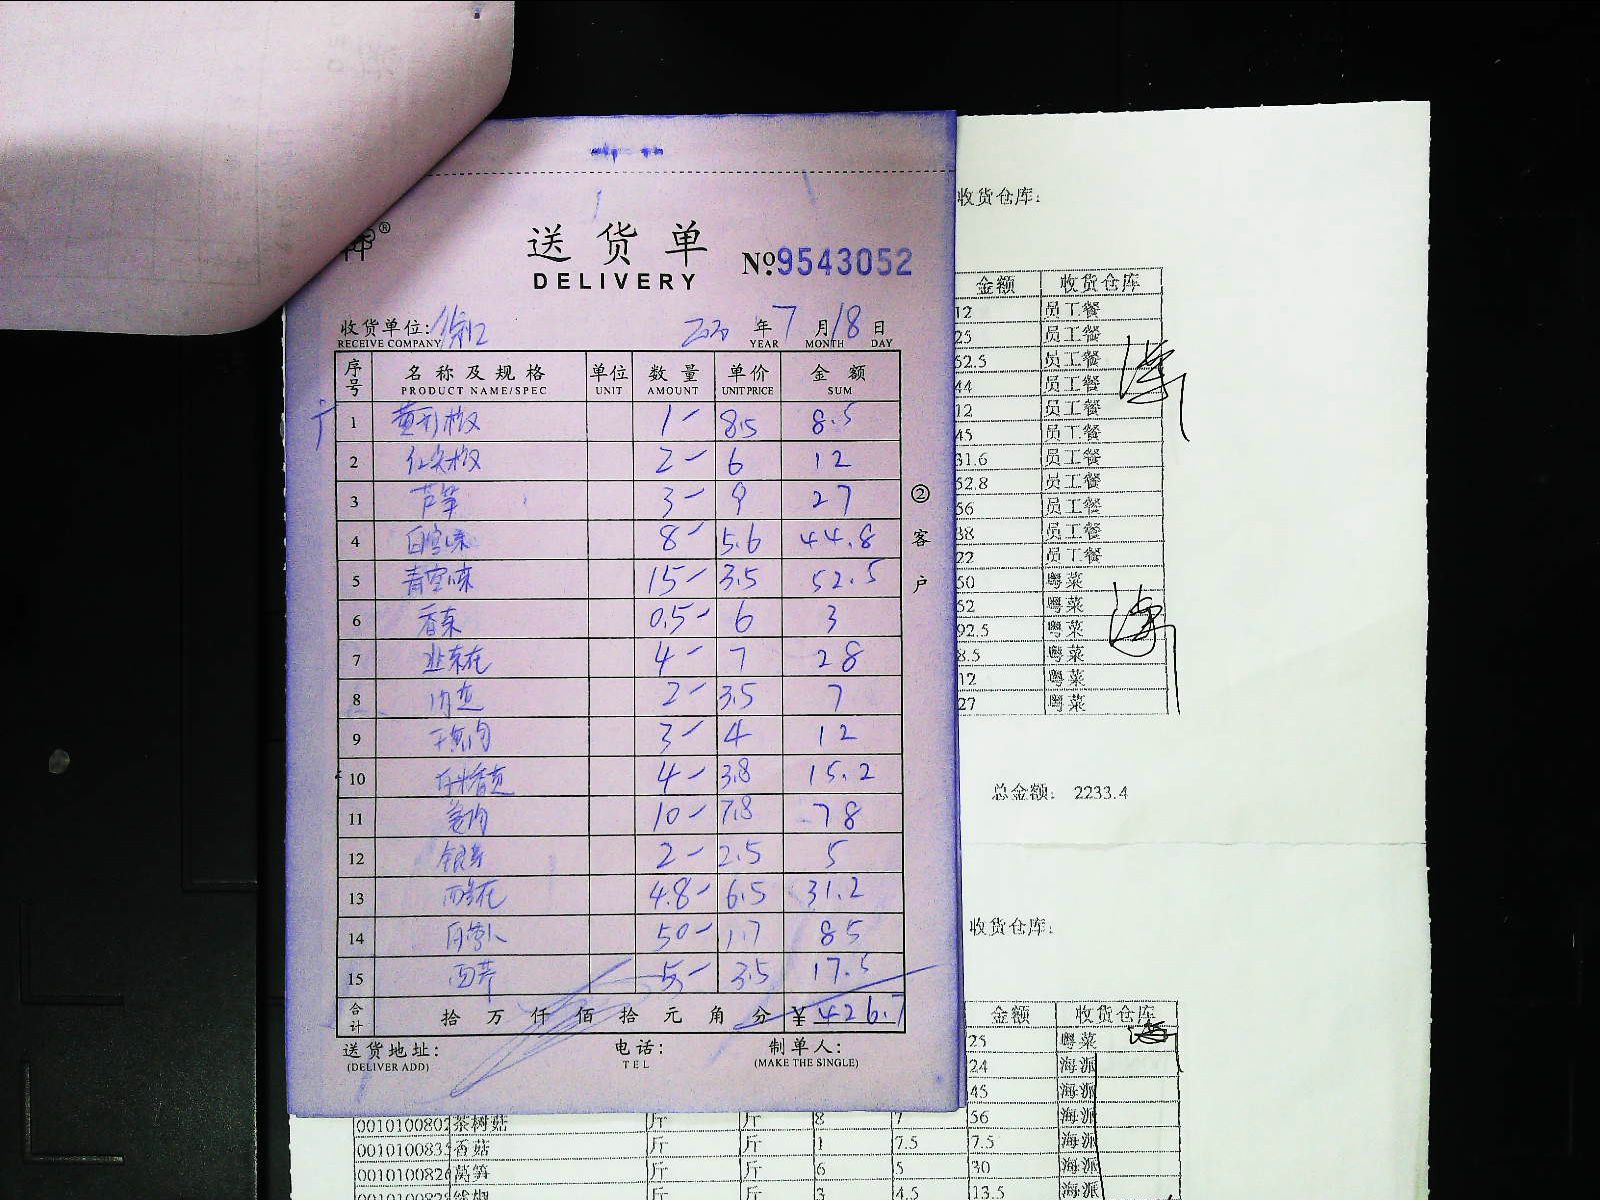 送货单
DELIVERY
№9543052
收货单位:
RECEIVE COMPANY
2020 年 7 月 18 日
YEAR MONTH DAY
序号 名称及规格 单位 数量 单价 金额
PRODUCT NAME/SPEC UNIT AMOUNT UNIT PRICE SUM
1 黄彩椒 1 8.5 8.5
2 红尖椒 2 6 12
3 芦笋 3 9 27
4 8 5.6 44.8
5 15 3.5 52.5
6 香菜 0.5 6 3
7 韭菜花 4 7 28
8 2 3.5 7
9 3 4 12
10 4 3.8 15.2
11 姜肉 10 7.8 78
12 银芽 2 2.5 5
13 西兰花 4.8 6.5 31.2
14 白萝卜 50 1.7 85
15 西芹 5 3.5 17.5
合计 拾 万 仟 佰 拾 元 角 分 ¥ 426.7
送货地址: 电话: 制单人:
(DELIVER ADD) TEL (MAKE THE SINGLE)
② 客户
收货仓库:
金额 收货仓库
12 员工餐
25 员工餐
52.5 员工餐
44 员工餐
12 员工餐
45 员工餐
31.6 员工餐
52.8 员工餐
56 员工餐
38 员工餐
22 员工餐
50 粤菜
52 粤菜
92.5 粤菜
8.5 粤菜
12 粤菜
27 粤菜
总金额: 2233.4
收货仓库:
金额 收货仓库
25 粤菜
24 海派
45 海派
0010100802 茶树菇 斤 斤 8 7 56 海派
0010100835 香菇 斤 斤 1 7.5 7.5 海派
0010100826 莴笋 斤 斤 6 5 30 海派
斤 斤 3 4.5 13.5 海派